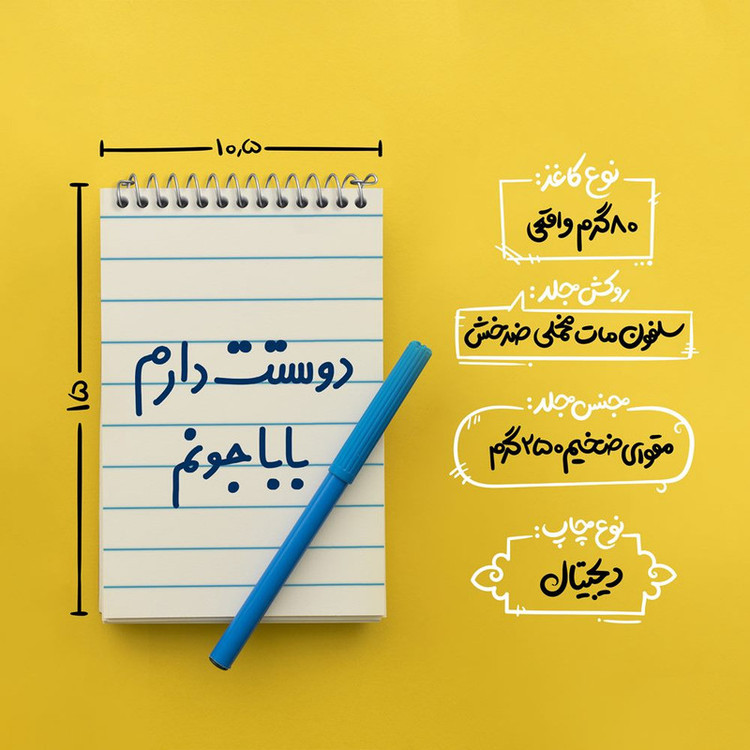 ۱۰٫۵
۱۵
دوستت دارم
باباجونم
نوع کاغذ:
۸۰ گرم واقعی
روکش جلد:
سلفون مات مخملی ضدخش
جنس جلد:
مقوای ضخیم ۲۵۰ گرم
نوع چاپ:
دیجیتال